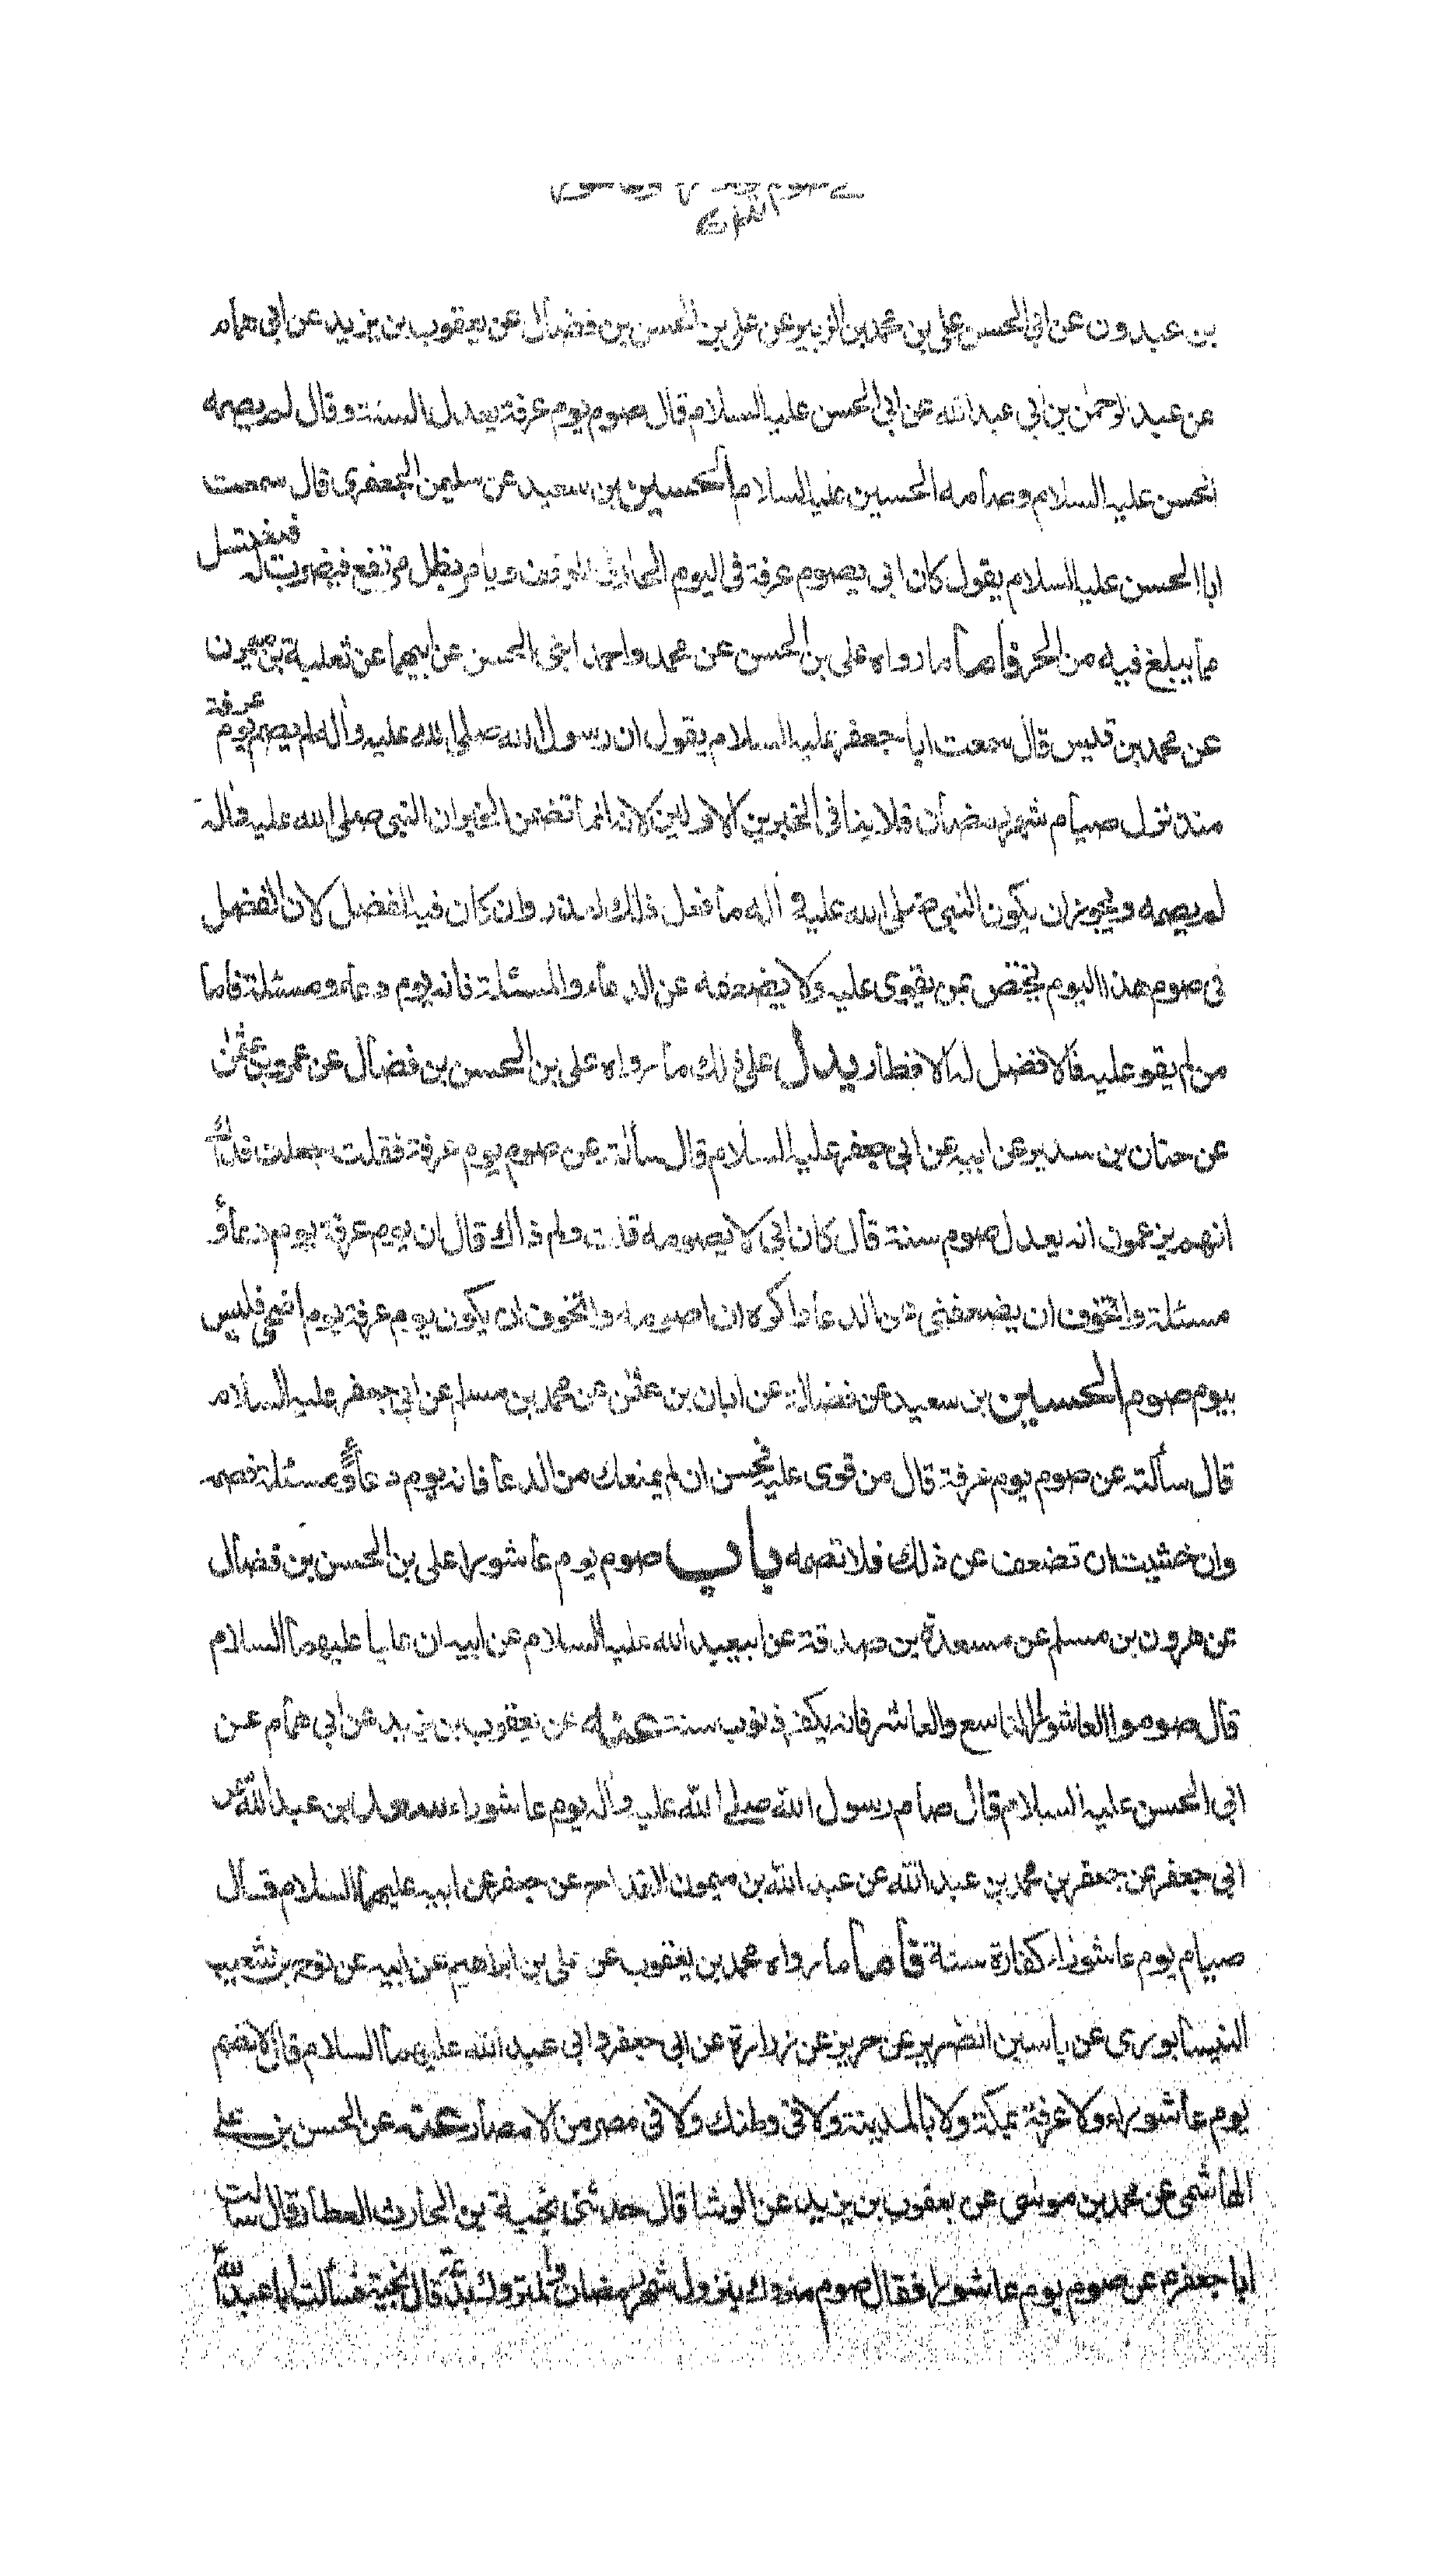 بن عبدون عن ابى الحسن على بن محمد بن الزبير عن على بن الحسن بن فضال عن يعقوب بن يزيد عن ابى همام
عن عبد الرحمن بن ابى عبد الله عن ابى الحسن عليه السلام قال صوم يوم عرفة يعدل السنة وقال لم يصمه
الحسن عليه السلام وصامه الحسين عليه السلام الحسين بن سعيد عن سليمن الجعفرى قال سمعت
ابا الحسن عليه السلام يقول كان ابى يصوم عرفة فى اليوم الحار فى الموقف ويامر بظل مرتفع فيضرب له فيغتسل
مما يبلغ فيه من الحر فأما ما رواه على بن الحسن عن محمد واحمد ابنى الحسن عن ابيهما عن ثعلبة بن ميمون
عن محمد بن قيس قال سمعت ابا جعفر عليه السلام يقول ان رسول الله صلى الله عليه وآله لم يصم يوم عرفة
منذ نزل صيام شهر رمضان فلا ينافى الخبرين الاولين لانه انما تضمن الخبر ان النبى صلى الله عليه وآله
لم يصمه ويجوز ان يكون النبى صلى الله عليه وآله ما فعل ذلك لعذر وان كان فيه الفضل لان الفضل
فى صوم هذا اليوم يختص بمن يقوى عليه ولا يضعفه عن الدعاء والمسئلة فانه يوم دعاء ومسئلة فاما
من لم يقو عليه فالافضل له الافطار يدل على ذلك ما رواه على بن الحسن بن فضال عن عمرو بن عثمن
عن حنان بن سدير عن ابيه عن ابى جعفر عليه السلام قال سألته عن صوم يوم عرفة فقلت جعلت فداك
انهم يزعمون انه يعدل صوم سنة قال كان ابى لا يصومه قلت ولم ذاك قال ان يوم عرفة يوم دعاء و
مسئلة واتخوف ان يضعفنى عن الدعا واكره ان اصومه واتخوف ان يكون يوم عرفة يوم اضحى فليس
بيوم صوم الحسين بن سعيد عن فضالة عن ابان بن عثمن عن محمد بن مسلم عن ابى جعفر عليه السلام
قال سألته عن صوم يوم عرفة قال من قوى عليه فحسن ان لم يمنعك من الدعا فانه يوم دعاء ومسئلة فصمه
وان خشيت ان تضعف عن ذلك فلا تصمه باب صوم يوم عاشورا على بن الحسن بن فضال
عن هرون بن مسلم عن مسعدة بن صدقة عن ابيعبد الله عليه السلام عن ابيه ان عليا عليهما السلام
قال صوموا العاشورا التاسع والعاشر فانه يكفر ذنوب سنة عنه عن يعقوب بن يزيد عن ابى همام عن
ابى الحسن عليه السلام قال صام رسول الله صلى الله عليه وآله يوم عاشوراء سعد ابن عبد الله عن
ابى جعفر عن جعفر بن محمد بن عبد الله عن عبد الله بن ميمون القداح عن جعفر عن ابيه عليهما السلام قال
صيام يوم عاشوراء كفارة سنة فأما ما رواه محمد بن يعقوب عن على بن ابراهيم عن ابيه عن نوح بن شعيب
النيسابورى عن ياسين الضرير عن حريز عن زرارة عن ابى جعفر وابى عبد الله عليهما السلام قال لا تصم
يوم عاشوراء ولا عرفة بمكة ولا بالمدينة ولا فى وطنك ولا فى مصر من الامصار عنه عن الحسن بن على
الهاشمى عن محمد بن موسى عن يعقوب بن يزيد عن الوشا قال حدثنى نجية بن الحارث العطار قال سالت
ابا جعفر ع عن صوم يوم عاشورا فقال صوم متروك بنزول شهر رمضان والمتروك بدعة قال نجية فسألت ابا عبد الله